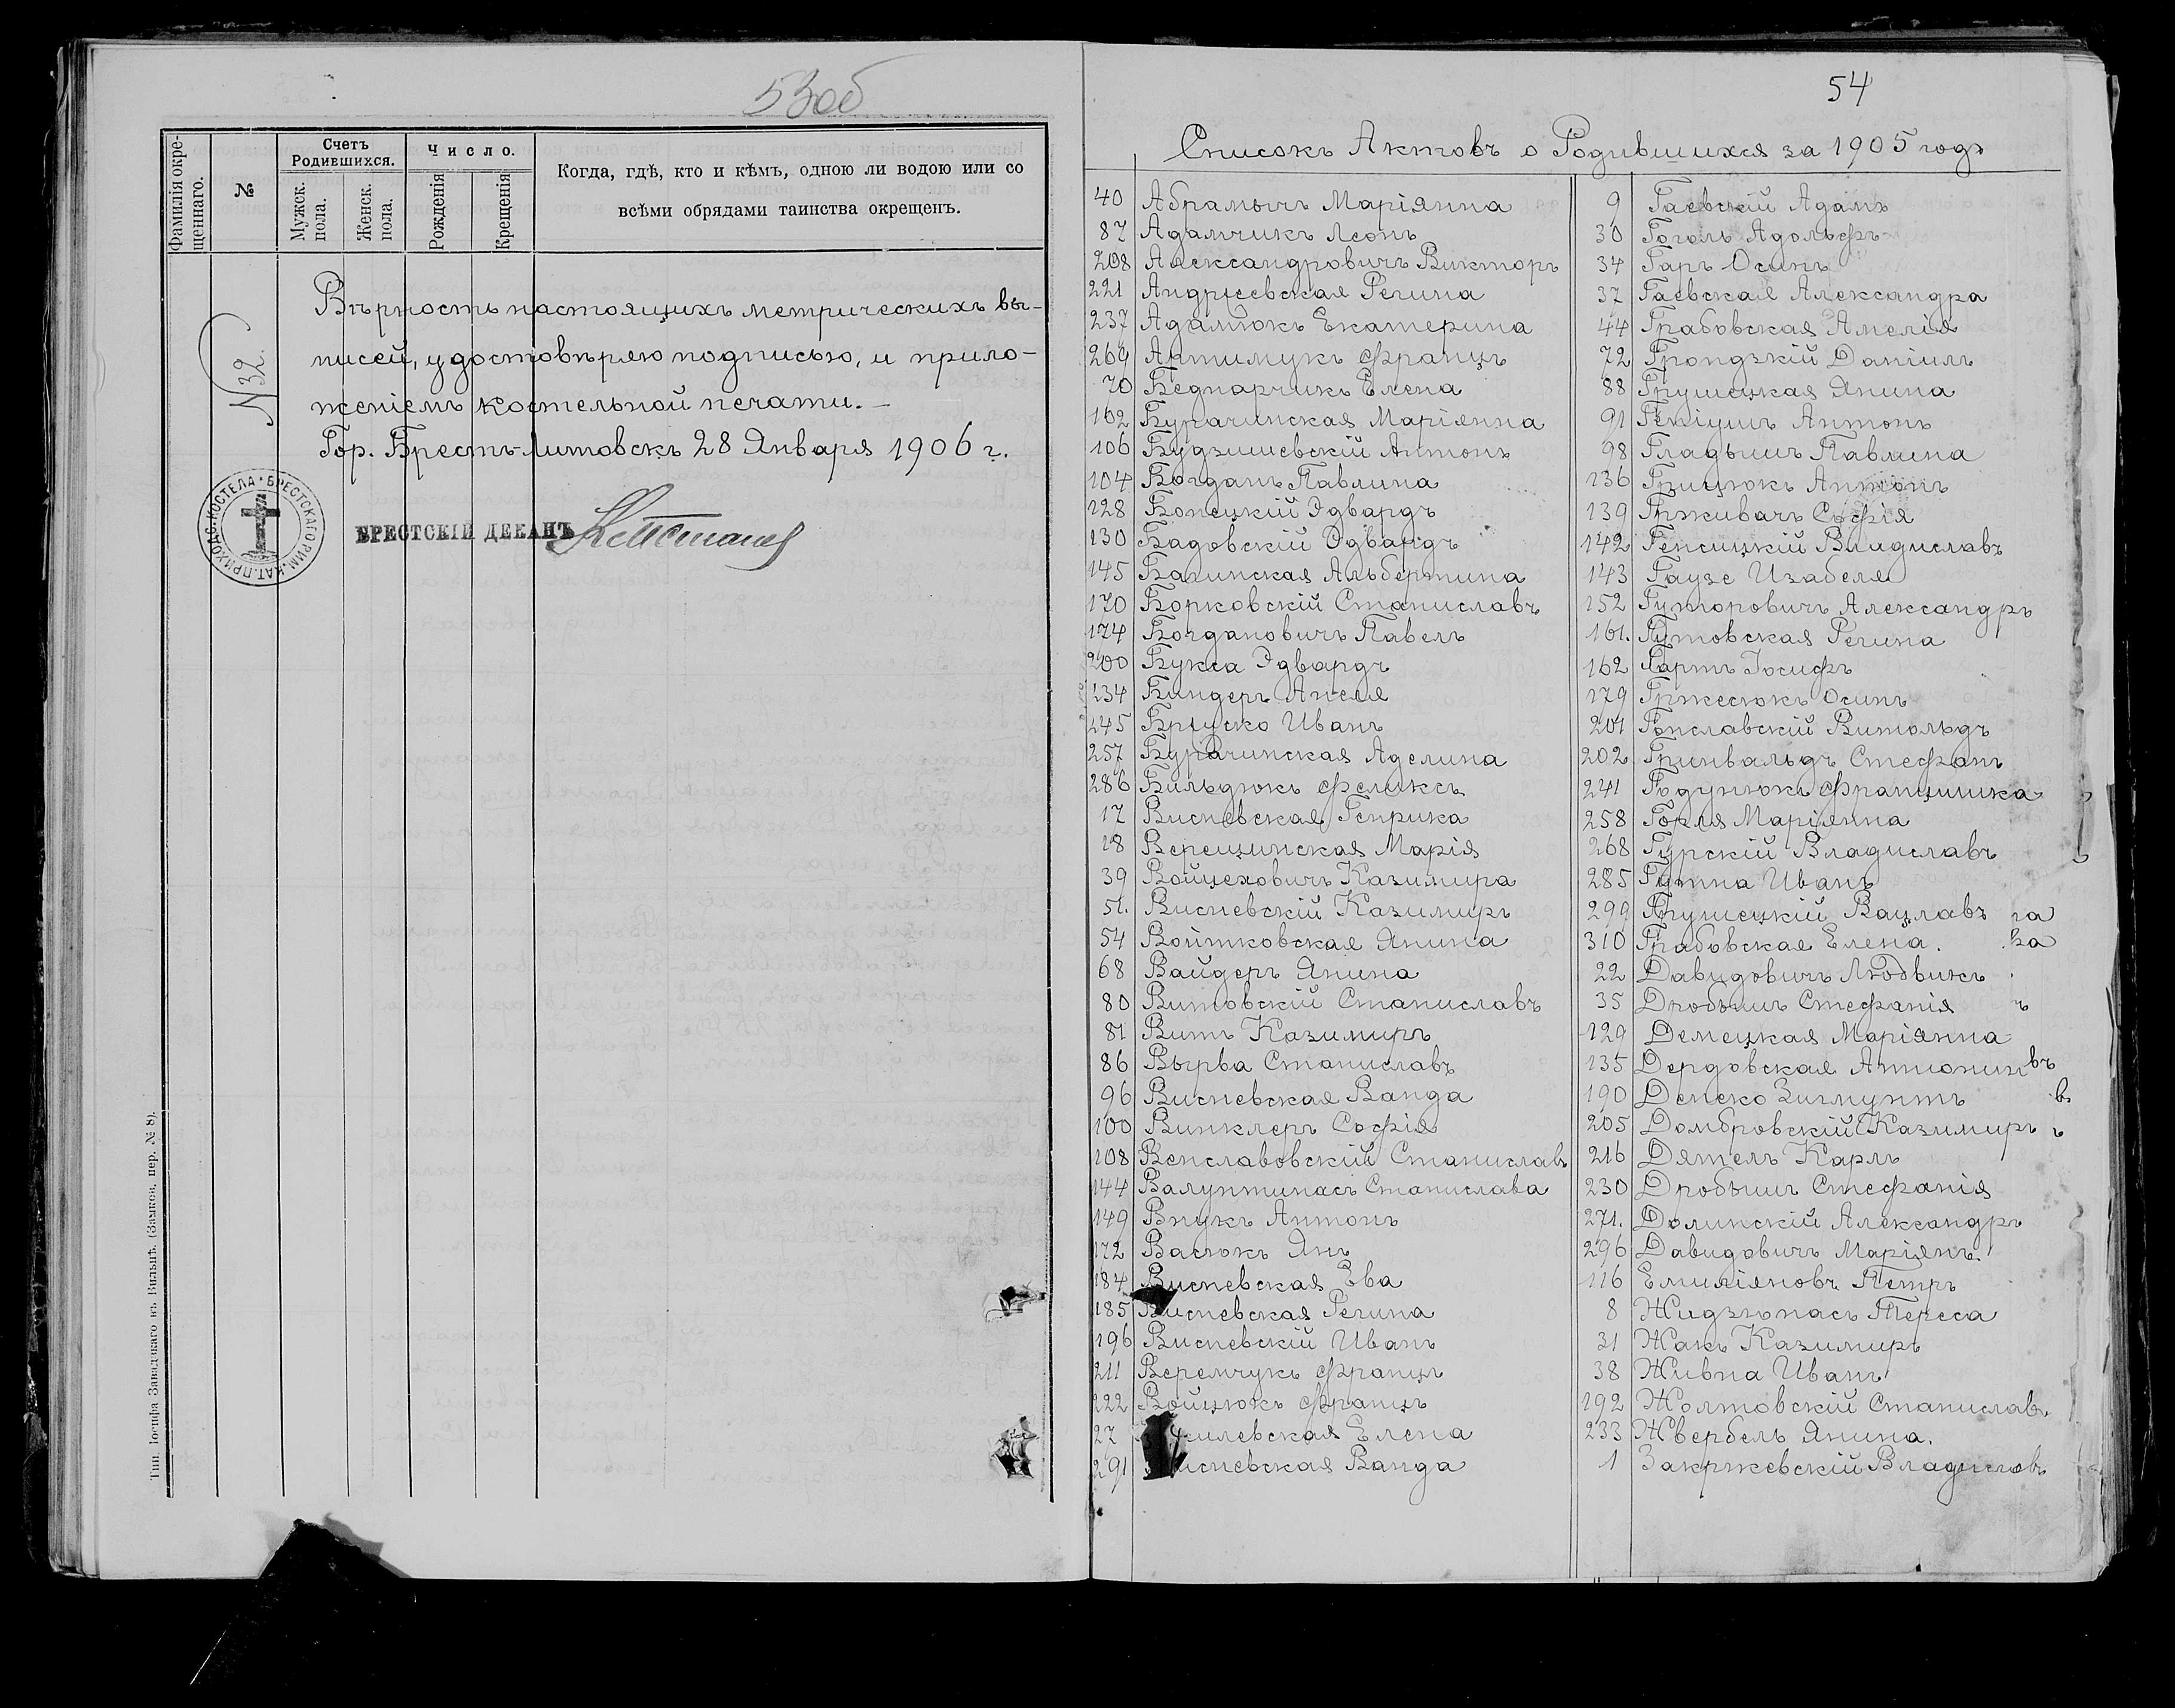 53об
Фамилія окре-
щеннаго.
№
Счетъ
Родившихся.
Мужск.
пола.
Женск.
пола.
Число.
Рожденія
Крещенія
Когда, гдѣ, кто и кѣмъ, одною ли водою или со
всѣми обрядами таинства окрещенъ.
N 32.
Вѣрность настоящихъ метрическихъ вы-
писей, удостовѣряю подписью, и прило-
женіемъ костельной печати. —
Гор. Брестъ-Литовскъ 28 Января 1906 г.
БРЕСТСКАГО РИМ. КАТ. ПРИХОД. КОСТЕЛА
БРЕСТСКІЙ ДЕКАНЪ
Тип. Іосифа Завадзкаго въ Вильнѣ. (Замков. пер. № 8).
54
Списокъ Актовъ о Родившихся за 1905 годъ
40 Абрамычъ Маріянна
87 Адамчикъ Леонъ
208 Александровичъ Викторъ
221 Андрiевская Регина
237 Адамюкъ Екатерина
269 Антимукъ Францъ
70 Беднарчикъ Елена
102 Бурачинская Маріянна
106 Будзишевскій Антонъ
104 Богданъ Павлина
128 Бонецкій Эдвардъ
130 Бадовскій Эдвардъ
145 Багинская Альбертина
170 Борковскій Станиславъ
174 Богдановичъ Павелъ
200 Букса Эдвардъ
234 Биндеръ Анеля
245 Бруско Иванъ
257 Бурачинская Аделина
286 Бильдюкъ Феликсъ
17 Висневская Генрика
18 Верещинская Марія
39 Войцеховичъ Казимира
51. Висневскій Казимиръ
54 Войтковская Янина
68 Вайдеръ Янина
80 Витовскій Станиславъ
81 Витъ Казимиръ
86 Вырва Станиславъ
96 Висневская Ванда
100 Винклеръ Софія
108 Венславовскій Станиславъ
144 Валунтинасъ Станислава
149 Внукъ Антонъ
172 Васюкъ Янъ
184 Висневская Эва
185 Висневская Регина
196 Висневскій Иванъ
211 Веремчукъ Францъ
222 Войцюкъ Францъ
27 Елена
291 Висневская Ванда
9 Гаевскій Адамъ
30 Гоголь Адольфъ
34 Гаръ Осипъ
37 Гаевская Александра
44 Грабовская Амелія
72 Грондзкій Даніилъ
88 Грушецкая Янина
91 Геніушъ Антонъ
98 Гладышъ Павлина
136 Грицюкъ Антонъ
139 Грживачъ Софія
142 Генсицкій Владиславъ
143 Гаузе Изабеля
152 Гуторовичъ Александръ
161. Гутовская Регина
162 Гартъ Іосифъ
179 Гржесюкъ Осипъ
201 Генславскій Витольдъ
202 Гринвальдъ Стефанъ
241 Годунюкъ Франтишка
258 Горля Маріянна
268 Гурскій Владиславъ
285 Гутна Иванъ
299 Грушецкій Вацлавъ
310 Грабовская Елена.
22 Давидовичъ Людвикъ
35 Дробышъ Стефанія
129 Демецкая Маріянна
135 Дердовская Антонин
190 Денско Зигмунтъ
205 Домбровскій Казимиръ
216 Дятелъ Карлъ
230 Дробышъ Стефанія
271. Долинскій Александръ
296 Давидовичъ Маріянъ
116 Емиліяновъ Петръ
8 Жидзюнасъ Тереса
31 Жакъ Казимиръ
38 Живна Иванъ
192 Жолтовскій Станиславъ
233 Жвербель Янина.
1 Закржевскій Владиславъ